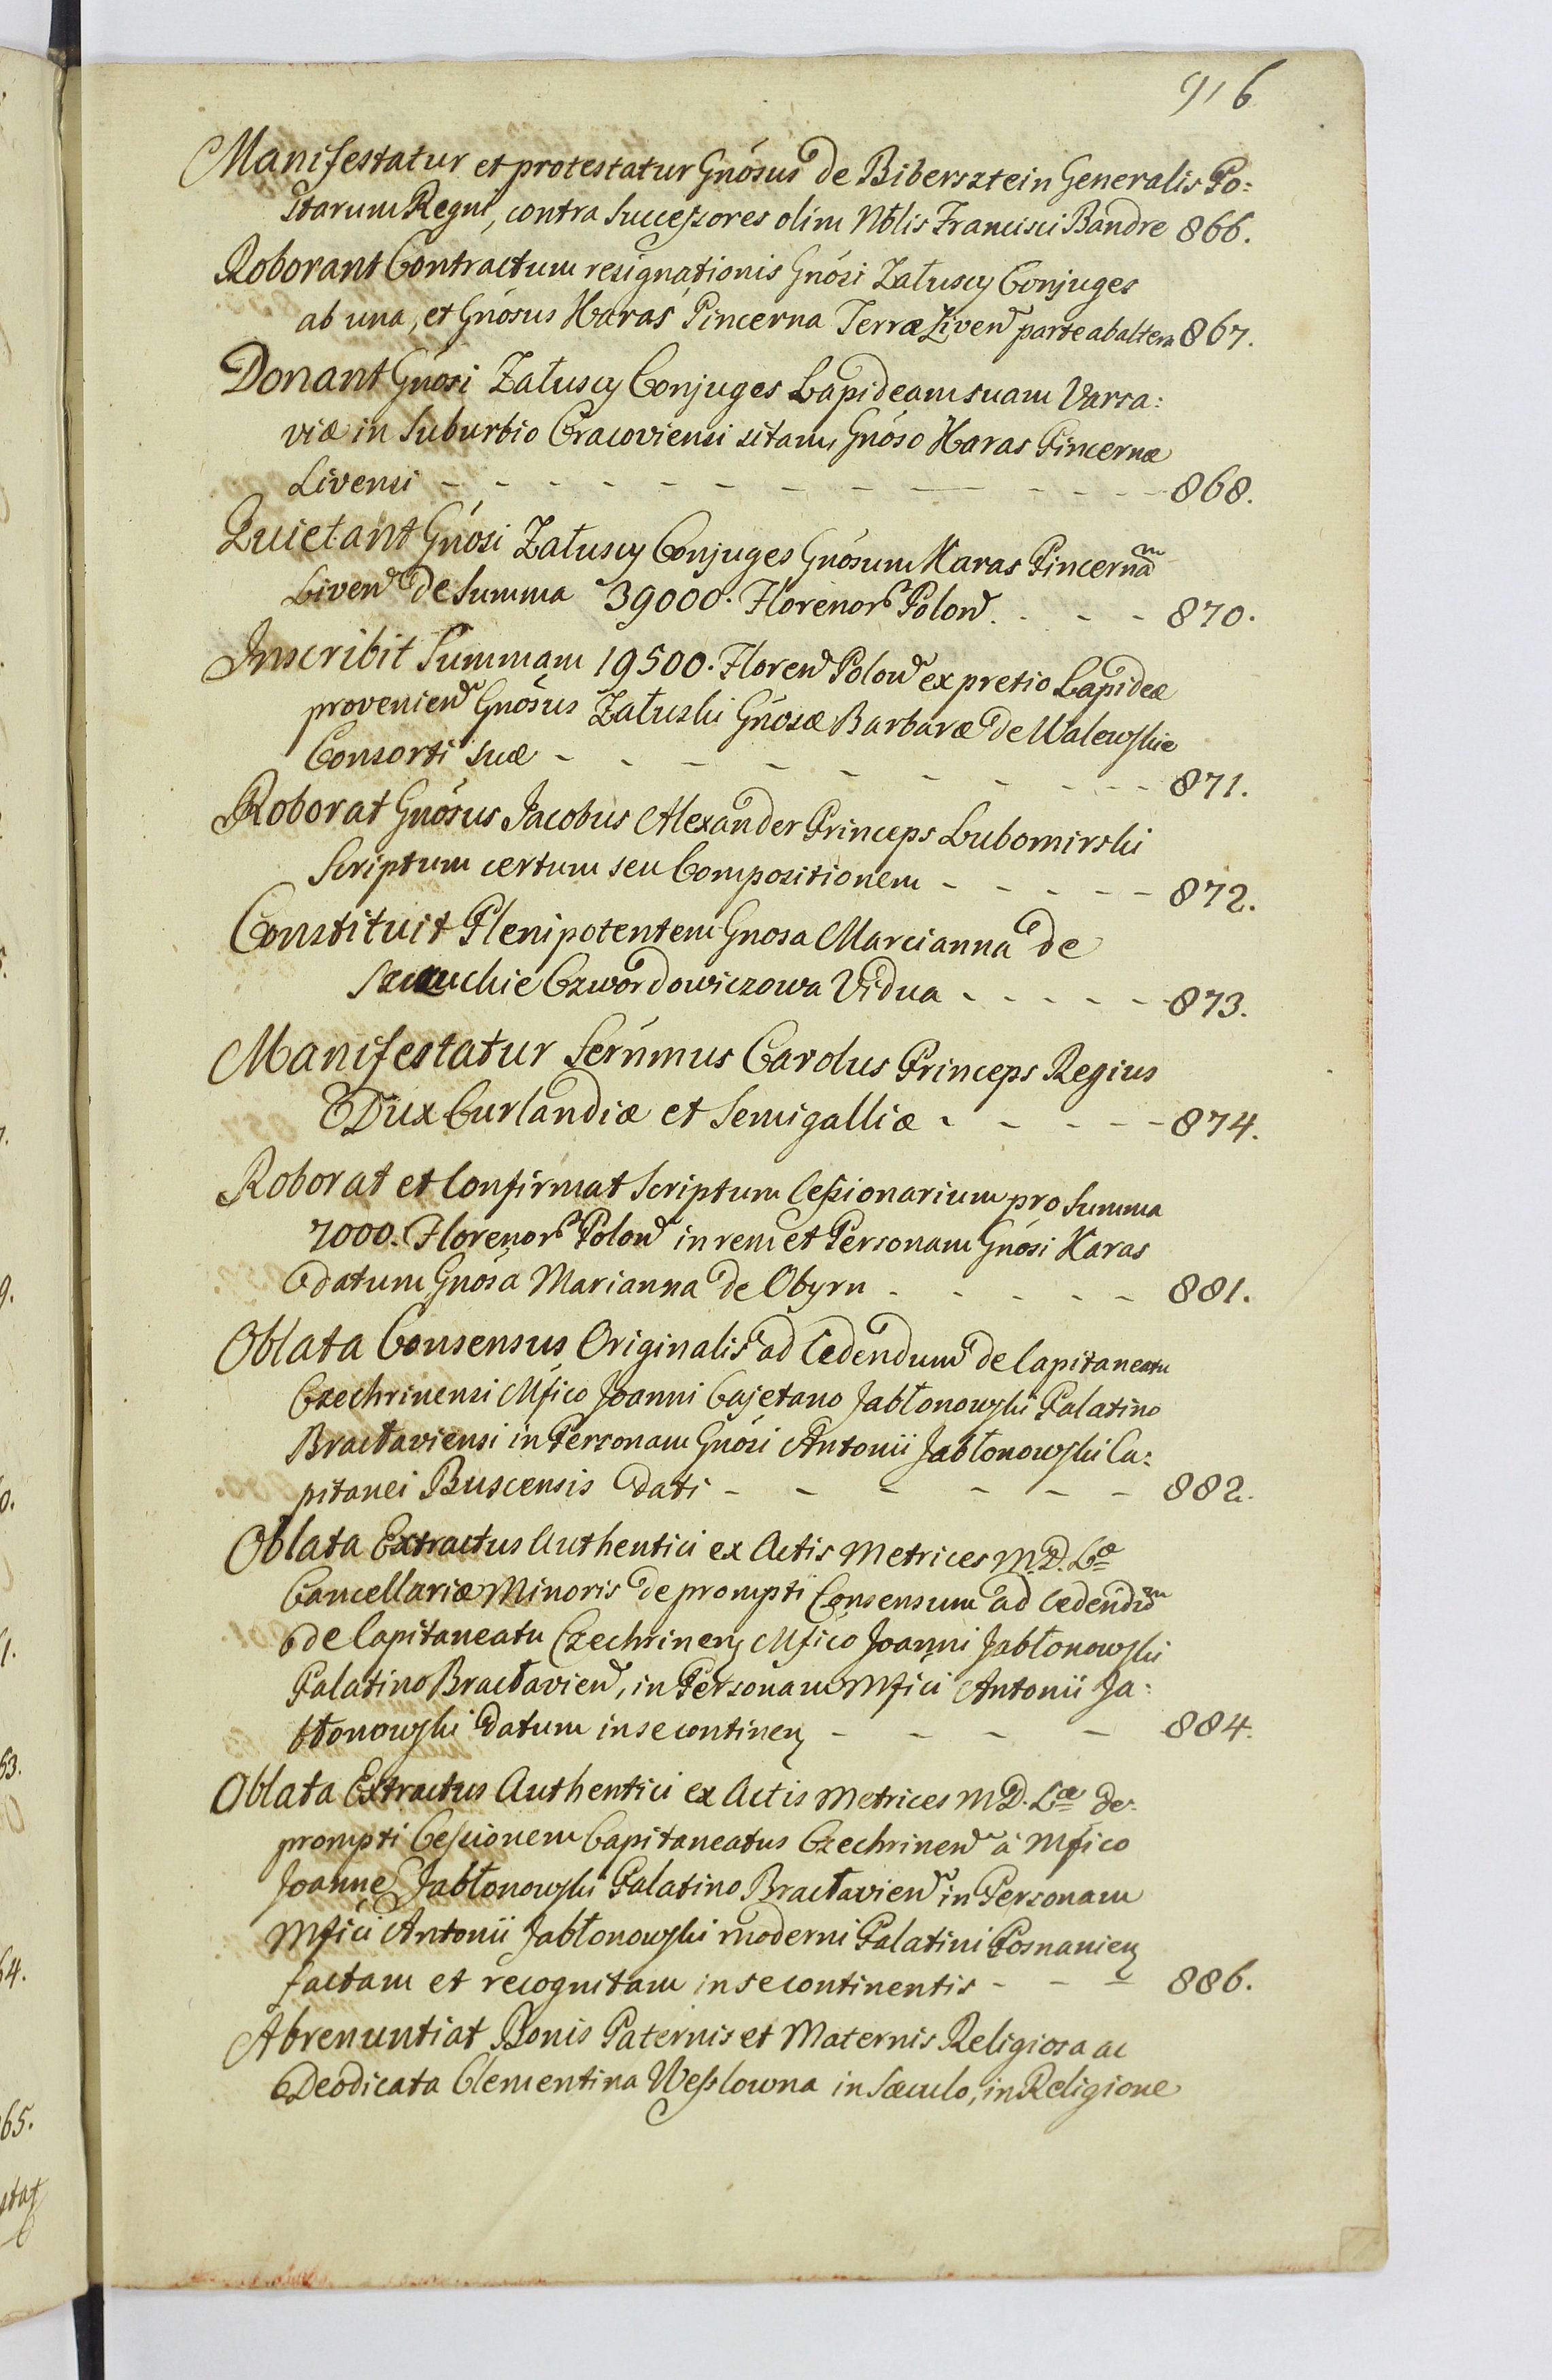 916
Manifestatur et protestatur Gnósus de Bibersztein Generalis Po:
starum Regni, contra Successores olim Nblis Francisci Bandre 866.
Roborant Contractum resignationis Gnósi Załuscy Conjuges
ab una, et Gnósus Karaś Pincerna Terræ Liven parte ab altera 867.
Donant Gnósi Załuscy Conjuges Lapideam suam Varsa:
viæ in Suburbio Cracoviensi sitam, Gnóso Karas Pincernæ
Livensi - - - - - - - - - - - - 868.
Quietant Gnósi Załuscy Conjuges Gnósum Karas Pincernam
Liven de Summa 39000. Florenor Polon. - - - 870.
Inscribit Summam 19500. Floren Polon ex pretio Lapideæ
provenien Gnósus Załuski Gnósæ Barbaræ de Walewskie
Consorti suæ - - - - - - - - - - 871.
Roborat Gnósus Jacobus Alexander Princeps Lubomirski
Scriptum certum seu Compositionem - - - - - 872.
Constituit Plenipotentem Gnosa Marcianna de
Czwordowiczowa Vidua - - - - - - 873.
Manifestatur Serńmus Carolus Princeps Regius
Dux Curlandiæ et Semigalliæ - - - - - 874.
Roborat et Confirmat Scriptum Cessionarium pro Summa
7000. Florenor Polon in rem et Personam Gnósi Karas
datum Gnósa Marianna de Obyrn - - - - - 881.
Oblata Consensus Originalis ad Cedendum de Capitaneatu
Czechrinensi Mfico Joanni Cajetano Jabłonowski Palatino
Bracłaviensi in Personam Gnósi Antonii Jabłonowski Ca:
pitanei Buscensis dati - - - - - - 882.
Oblata Extractus Authentici ex Actis Metrices M. D. Læ
Cancellariæ Minoris deprompti Consensum ad cedendum
de Capitaneatu Czechrinen Mfico Joanni Jabłonowski
Palatino Bracłavien, in Personam Mfici Antonii Ja:
błonowski datum in se continen - - - - 884.
Oblata Extractus Authentici ex Actis Metrices M. D. Læ de:
prompti Cessionem Capitaneatus Czechrinen à Mfico
Joanne Jabłonowski Palatino Bracłavien in Personam
Mfici Antonii Jabłonowski moderni Palatini Posnanien
factam et recognitam in se continentis - - - 886.
Abrenuntiat Bonis Paternis et Maternis Religiosa ac
Deodicata Clementina Wesslowna in Sæculo, in Religione